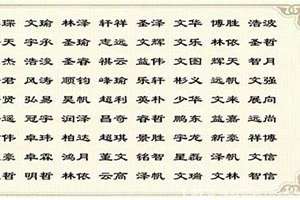 琛 文瑜 林泽 轩祥 圣泽 文华 博胜 浩波
天 宇承 圣瑜 志远 文辉 文乐 林依 圣哲
杰 浩浚 圣睿 祺云 益伟 文图 辉天 智月
君 风涛 顺钧 峰瑜 乐轩 彬义 远帆 文强
贤 弘易 昊帆 超利 英朴 少华 文来 展向
遥 冠宇 润泽 昌奇 睿哲 鹏东 益嘉 远尚
伟 卓玮 柏达 超琪 景胜 宇龙 新豪 祥博
豪 卓霖 鸿月 董文 铭智 星磊 泽帆 文信
哲 明哲 林依 云高 泽帆 文瑞 文林 智信